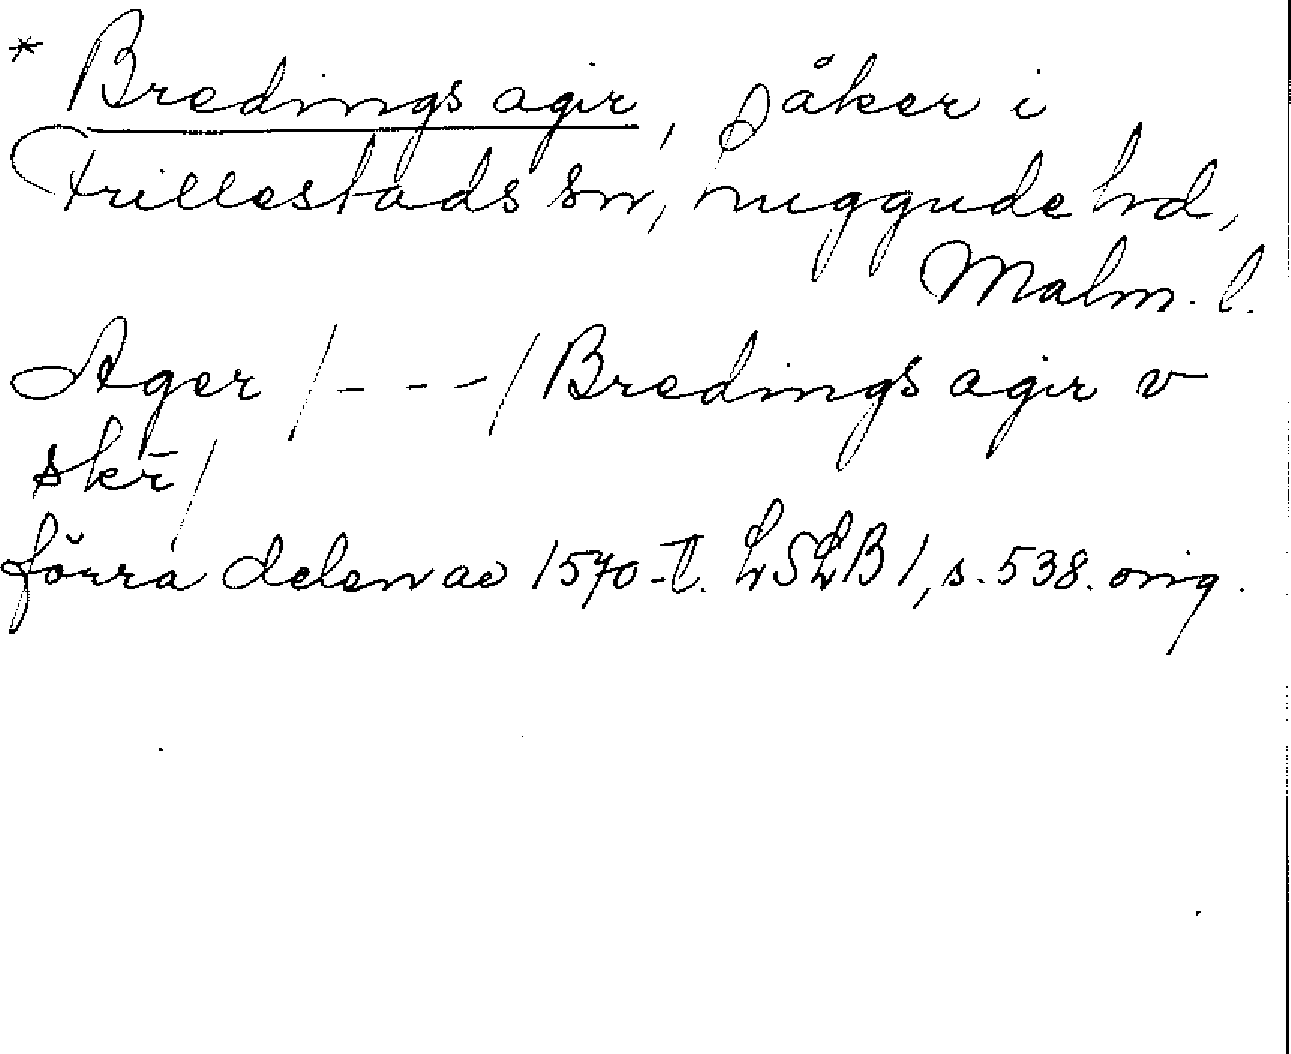 * Bredings agir, på åker i
Frillestads sn, Luggude hd,
Malm. l.
Ager /- - -/ Bredings agir v
skr̄/
förra delen av 1570-t. LSLB 1, s. 538. orig.